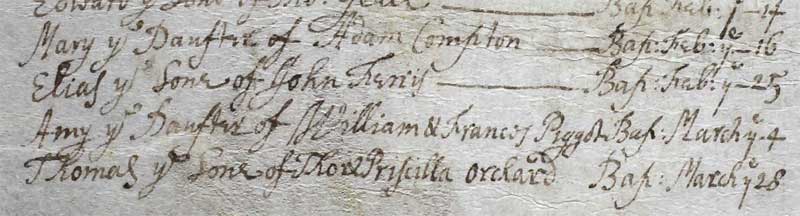 Edward yᵉ Sone of Tho: ——— Bap: Feb: yᵉ 14
Mary yᵉ Daufter of Adam Compton ——— Bap: Feb: yᵉ 16
Elias yᵉ Sone of John Fenis ——— Bap: Feb: yᵉ 25
Amy yᵉ Daufter of William & Frances Piggot Bap: March yᵉ 4
Thomas yᵉ Sone of Tho: & Priscilla Orchard Bap: March yᵉ 28